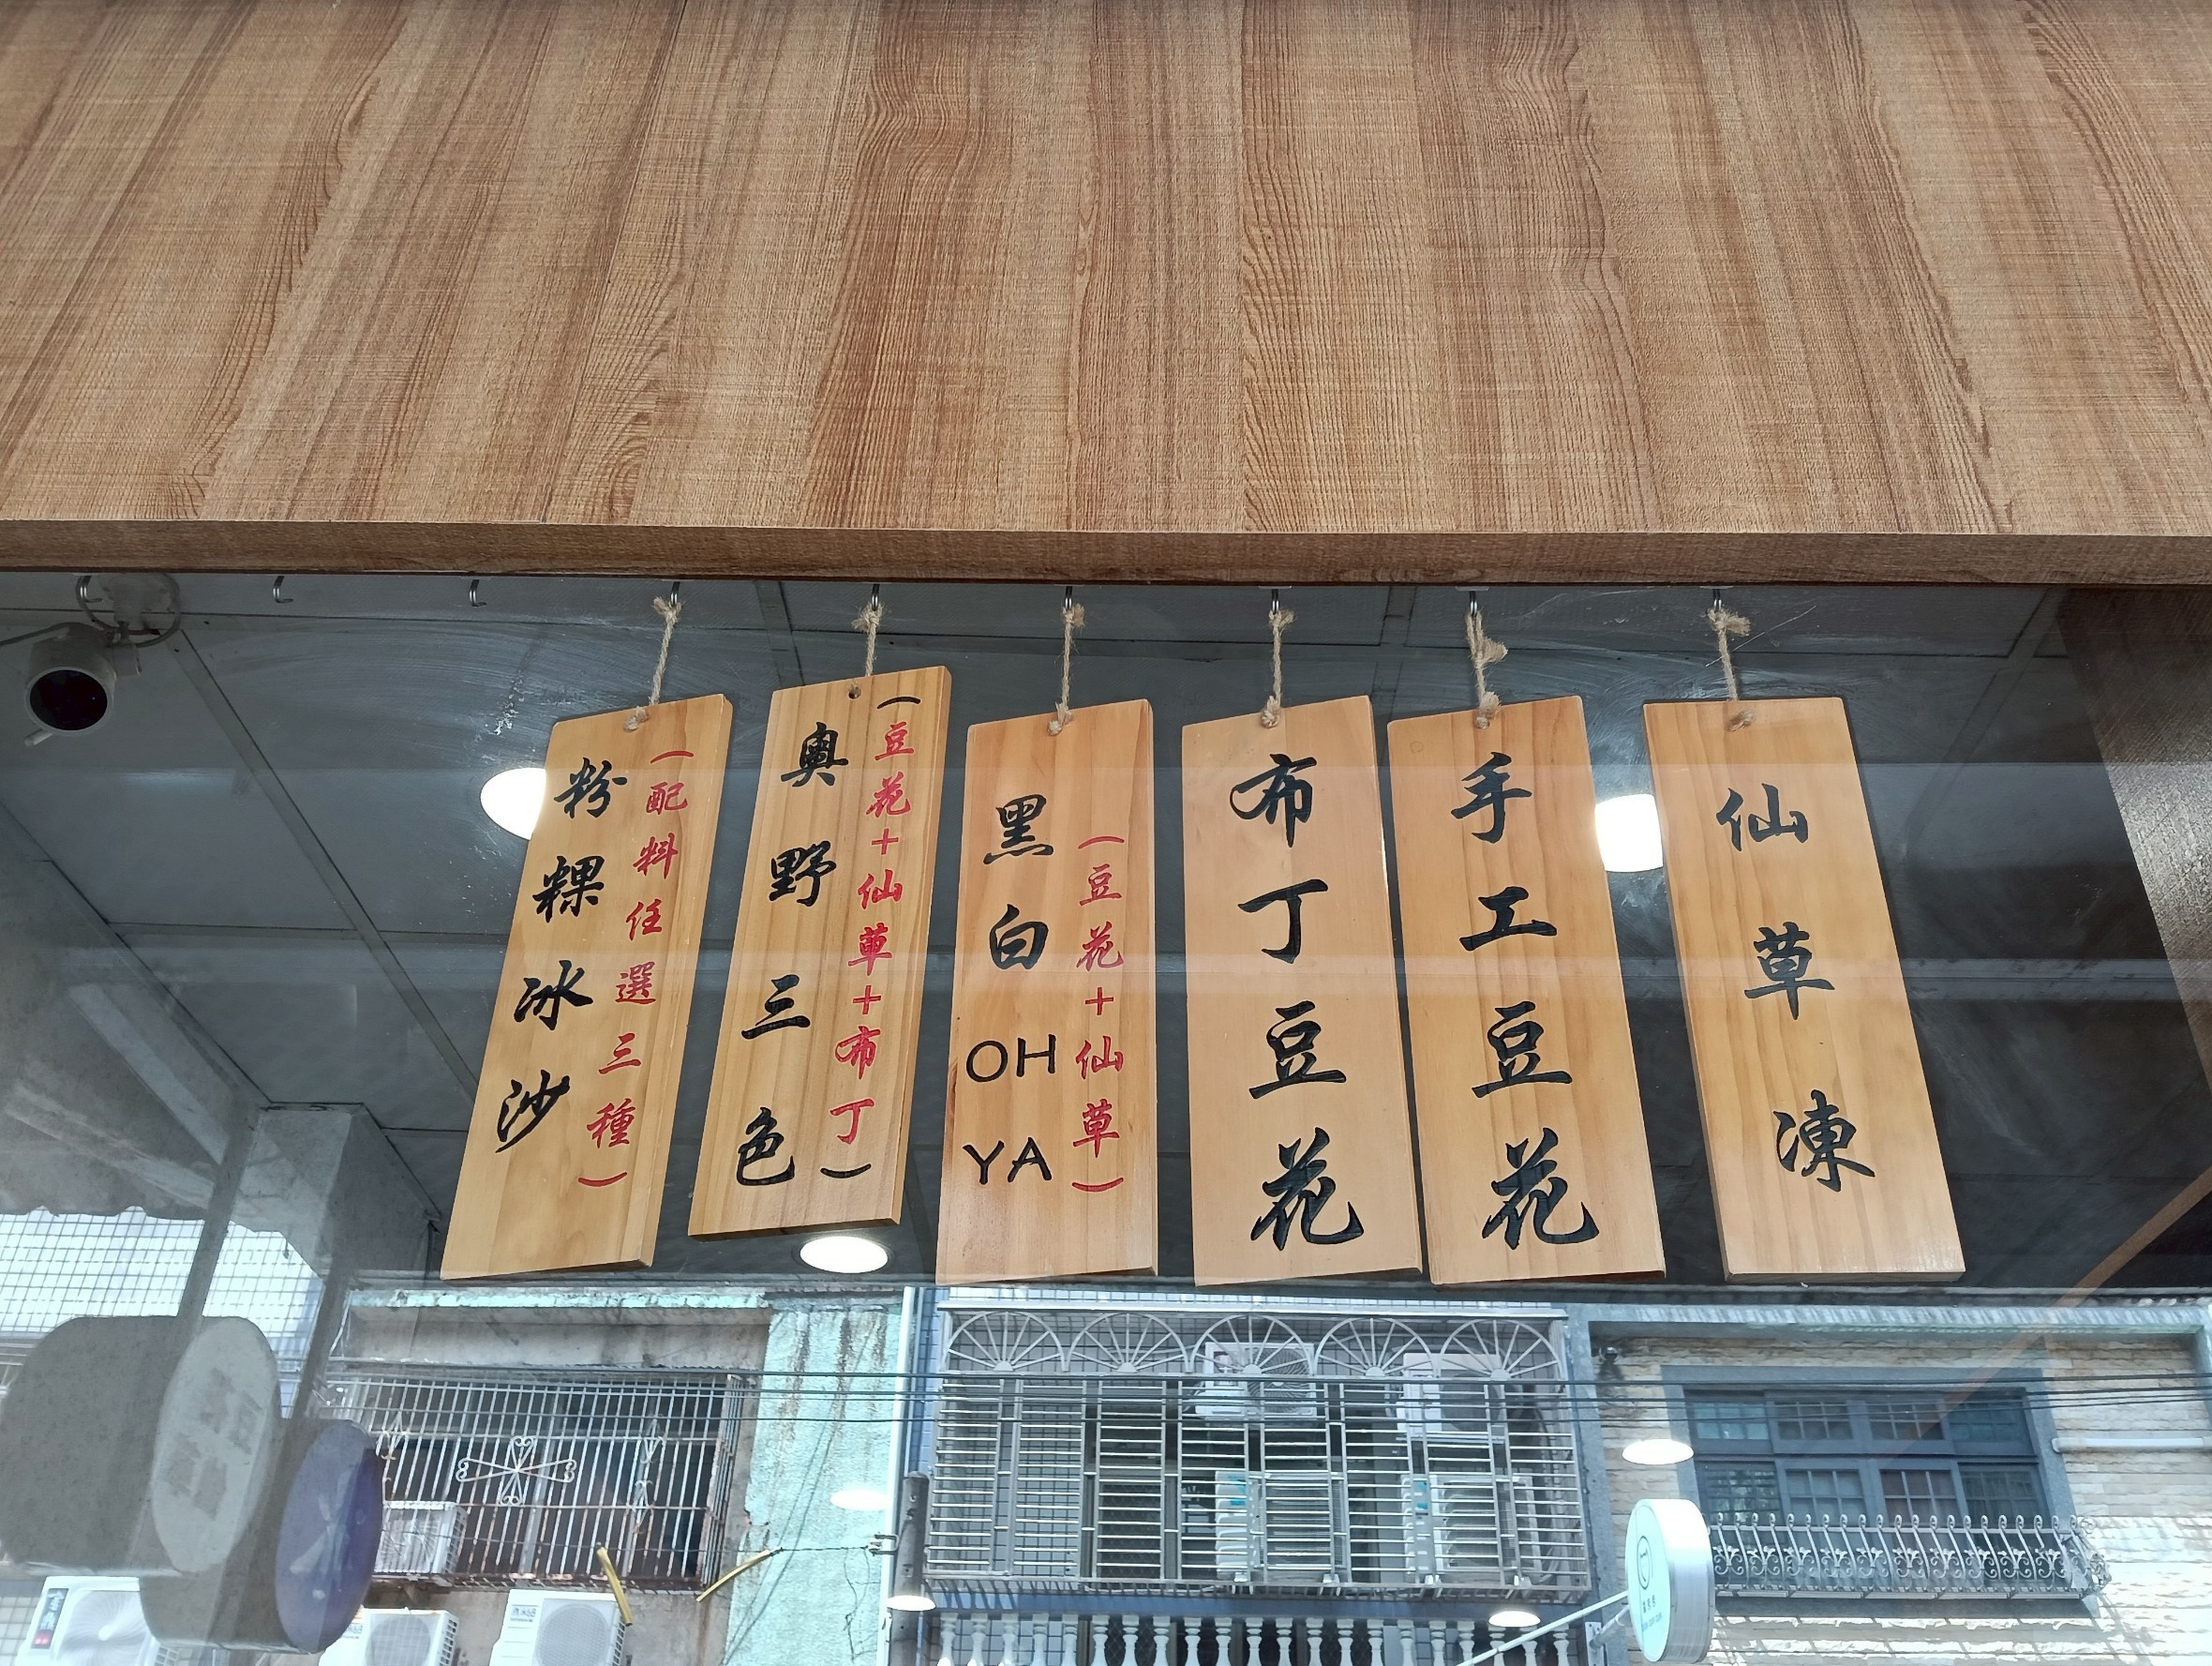 仙草凍
手工豆花
布丁豆花
黑白OH YA
(豆花+仙草)
奧野三色
(豆花+仙草+布丁)
粉粿冰沙
(配料任選三種)